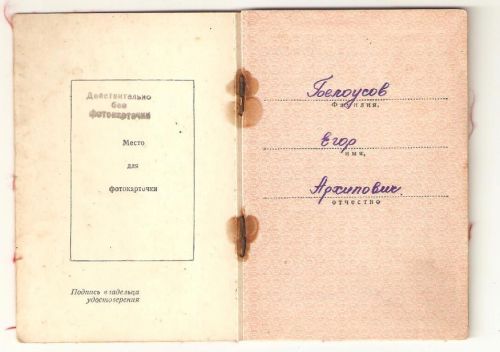 Действительно
без
фотокарточки
Место
для
фотокарточки
Подпись владельца
удостоверения
Белоусов
Фамилия,
Егор
имя,
Архипович
отчество